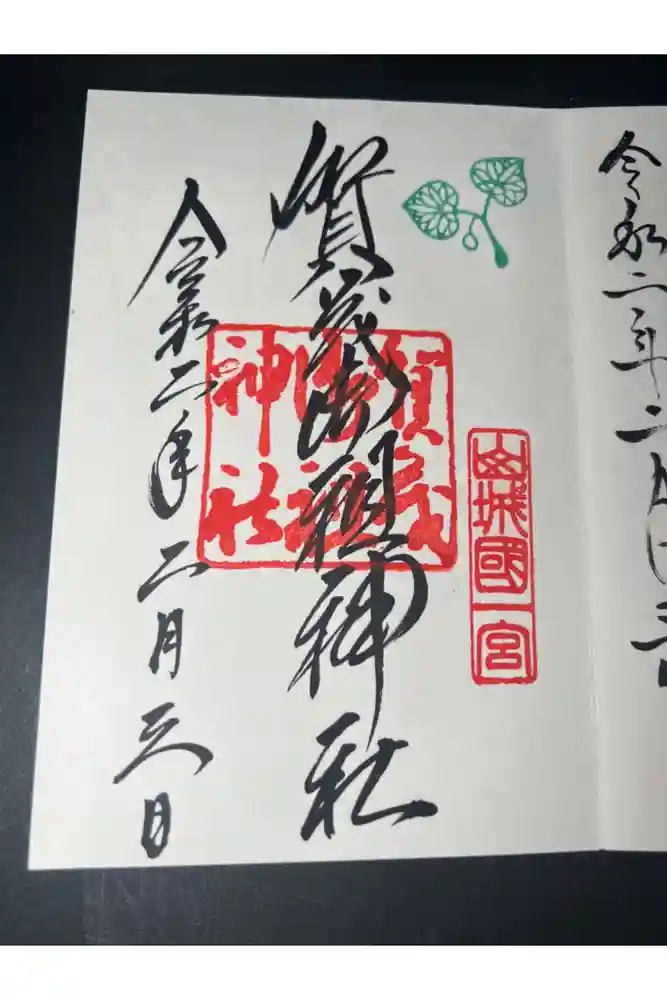 令和二年二月
山城國一宮
賀茂御祖神社
賀茂御祖神社
令和二年二月三日